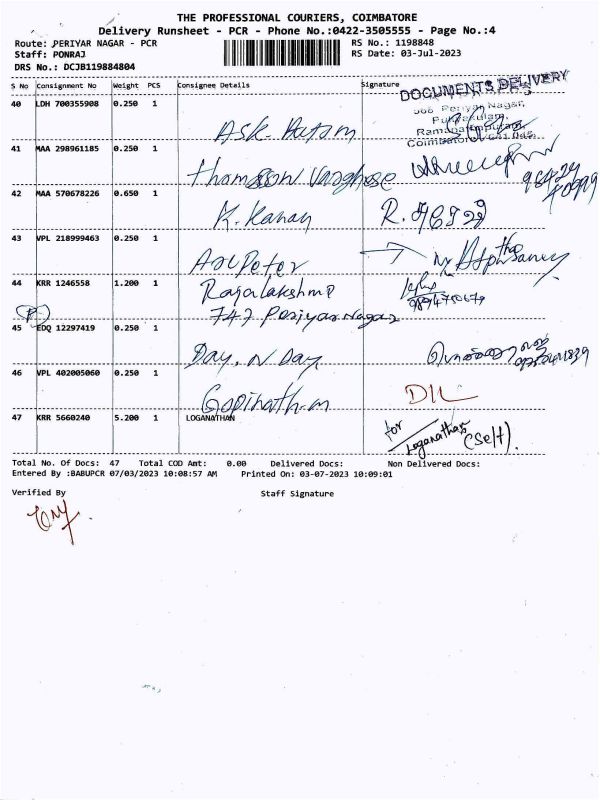 THE PROFESSIONAL COURIERS, COIMBATORE
Delivery Runsheet - PCR - Phone No.:0422-3505555 - Page No.:4
Route: PERIYAR NAGAR - PCR RS No.: 1198848
Staff: PONRAJ RS Date: 03-Jul-2023
DRS No.: DCJB119884804
S No Consignment No Weight PCS Consignee Details Signature
DOCUMENTS DELIVERY
Periyar Nagar,
40 LDH 700355908 0.250 1
Coimbatore
41 MAA 298961185 0.250 1
Thomson Varghese
42 MAA 570678226 0.650 1
K. Kanan
43 VPL 218999463 0.250 1
44 KRR 1246558 1.200 1 Rajalakshmi
747 Periyar Nagar
P
45 EDQ 12297419 0.250 1
Day N Day
46 VPL 402005060 0.250 1
Gopinath.m
47 KRR 5660240 5.200 1 LOGANATHAN
for Loganathan (Self).
Total No. Of Docs: 47 Total COD Amt: 0.00 Delivered Docs: Non Delivered Docs:
Entered By :BABUPCR 07/03/2023 10:08:57 AM Printed On: 03-07-2023 10:09:01
Verified By Staff Signature